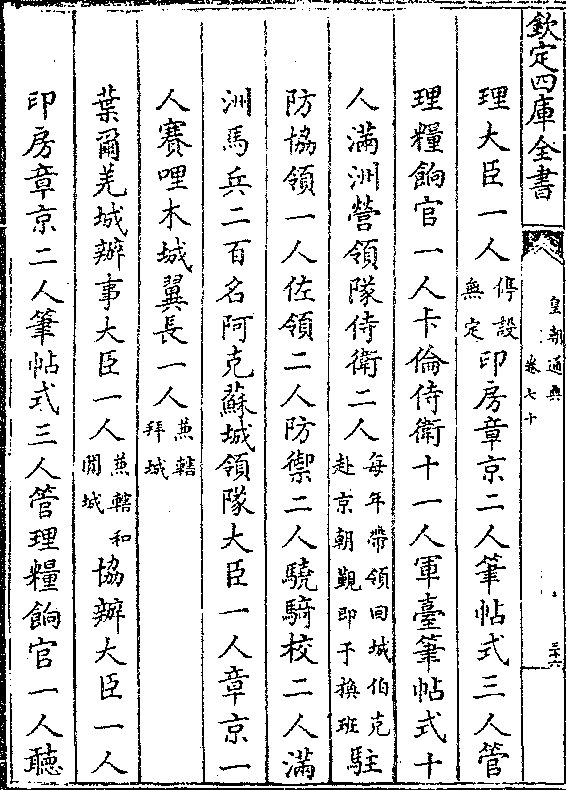 欽定四庫全書
皇朝通典
卷七十
三十六
理大臣一人停設無定印房章京二人筆帖式三人管
理糧餉官一人卡倫侍衛十一人軍臺筆帖式十
人滿洲營領隊侍衛二人每年帶領回城伯克赴京朝覲即予換班駐
防協領一人佐領二人防禦二人驍騎校二人滿
洲馬兵二百名阿克蘇城領隊大臣一人章京一
人賽哩木城翼長一人兼轄拜城
葉爾羌城辦事大臣一人兼轄和闐城協辦大臣一人
印房章京二人筆帖式三人管理糧餉官一人聽